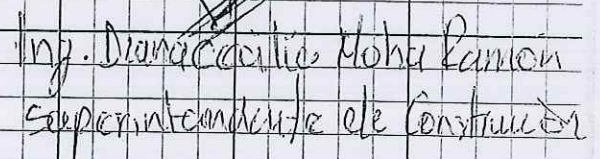 Ing. Diana Cecilia Moha Ramon
Superintendente de Construcción